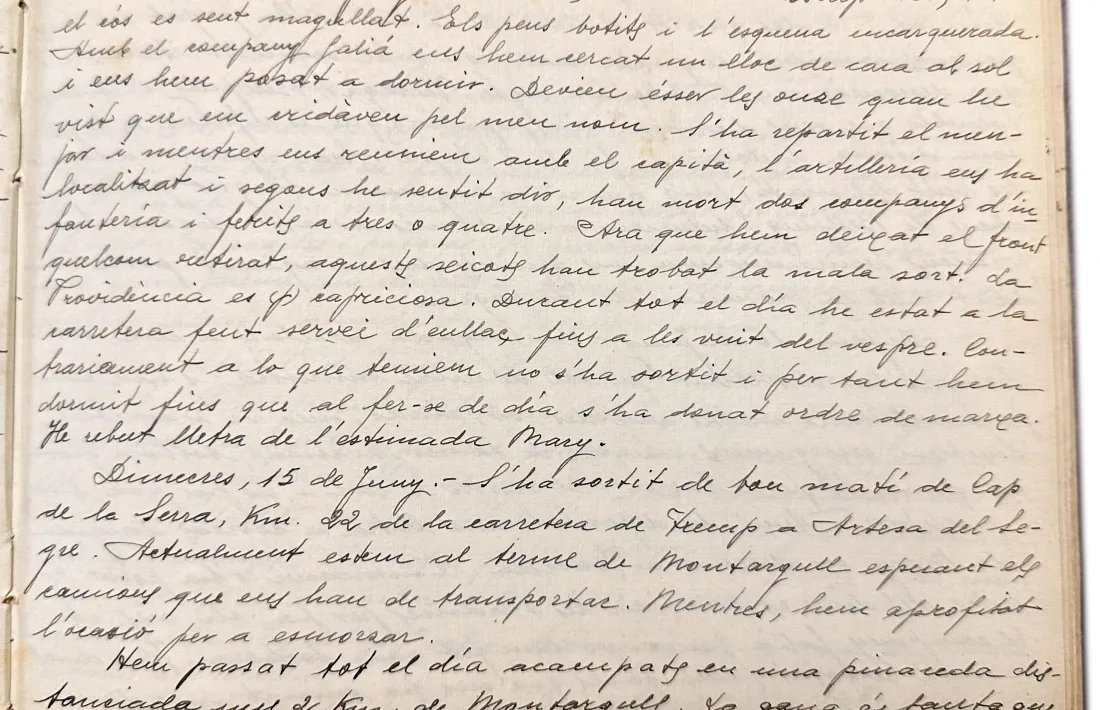 el cós es sent magullat. Els peus botits i l'esquena encarquerada.
Amb el company Galiá ens hem cercat un lloc de cara al sol
i ens hem posat a dormir. Devien ésser les onze quan he
vist que em cridàven pel meu nom. S'ha repartit el men-
jar i mentres ens reuniem amb el capità, l'artilleria ens ha
localitzat i segons he sentit dir, han mort dos companys d'in-
fanteria i ferits a tres o quatre. Ara que hem deixat el front
quelcom retirat, aquests xicots han trobat la mala sort. La
Providència es (f) capriciosa. Durant tot el día he estat a la
carretera fent servei d'enllaç, fins a les vuit del vespre. Con-
trariament a lo que temiem no s'ha sortit i per tant hem
dormit fins que al fer-se de día s'ha donat ordre de marxa.
He rebut lletra de l'estimada Mary.
Dimecres, 15 de Juny.- S'ha sortit de bon matí de Cap
de la Serra, Km. 22 de la carretera de Tremp a Artesa del Se-
gre. Actualment estem al terme de Montargull esperant els
camions que ens han de transportar. Mentres, hem aprofitat
l'ocasió per a esmorzar.
Hem passat tot el día acampats en una pinareda dis-
tanciada uns 2 Km. de Montargull. La gana és tanta que